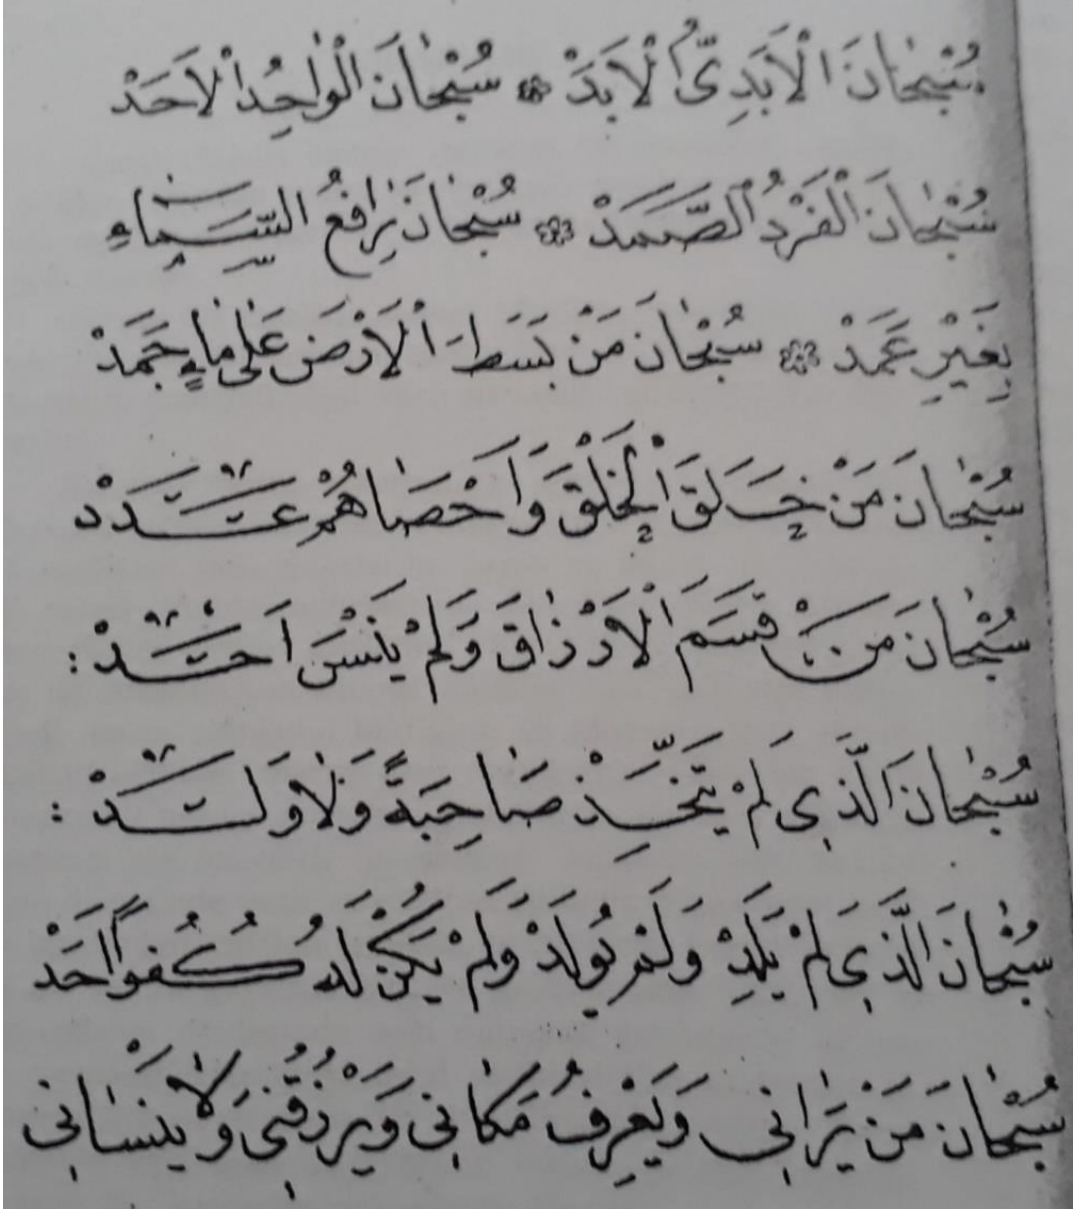 سُبْحَانَ الْاَبَدِىِّ الْاَبَدْ * سُبْحَانَ الْوَاحِدُ الْاَحَدْ
سُبْحَانَ الْفَرْدُ الصَّمَدْ * سُبْحَانَ رَافِعُ السَّمَاءِ
بِغَيْرِ عَمَدْ * سُبْحَانَ مَنْ بَسَطَ الْاَرْضَ عَلٰى مَاءٍ جَمَدْ
سُبْحَانَ مَنْ خَلَقَ الْخَلْقَ وَاَحْصَاهُمْ عَدَدْ
سُبْحَانَ مَنْ قَسَمَ الْاَرْزَاقَ وَلَمْ يَنْسَ اَحَدْ :
سُبْحَانَ الَّذِى لَمْ يَتَّخِذْ صَاحِبَةً وَلَا وَلَدْ :
سُبْحَانَ الَّذِى لَمْ يَلِدْ وَلَمْ يُولَدْ وَلَمْ يَكُنْ لَهُ كُفُواً اَحَدْ
سُبْحَانَ مَنْ يَرَانِى وَيَعْرِفُ مَكَانِى وَيَرْزُقُنِى وَلَا يَنْسَانِى